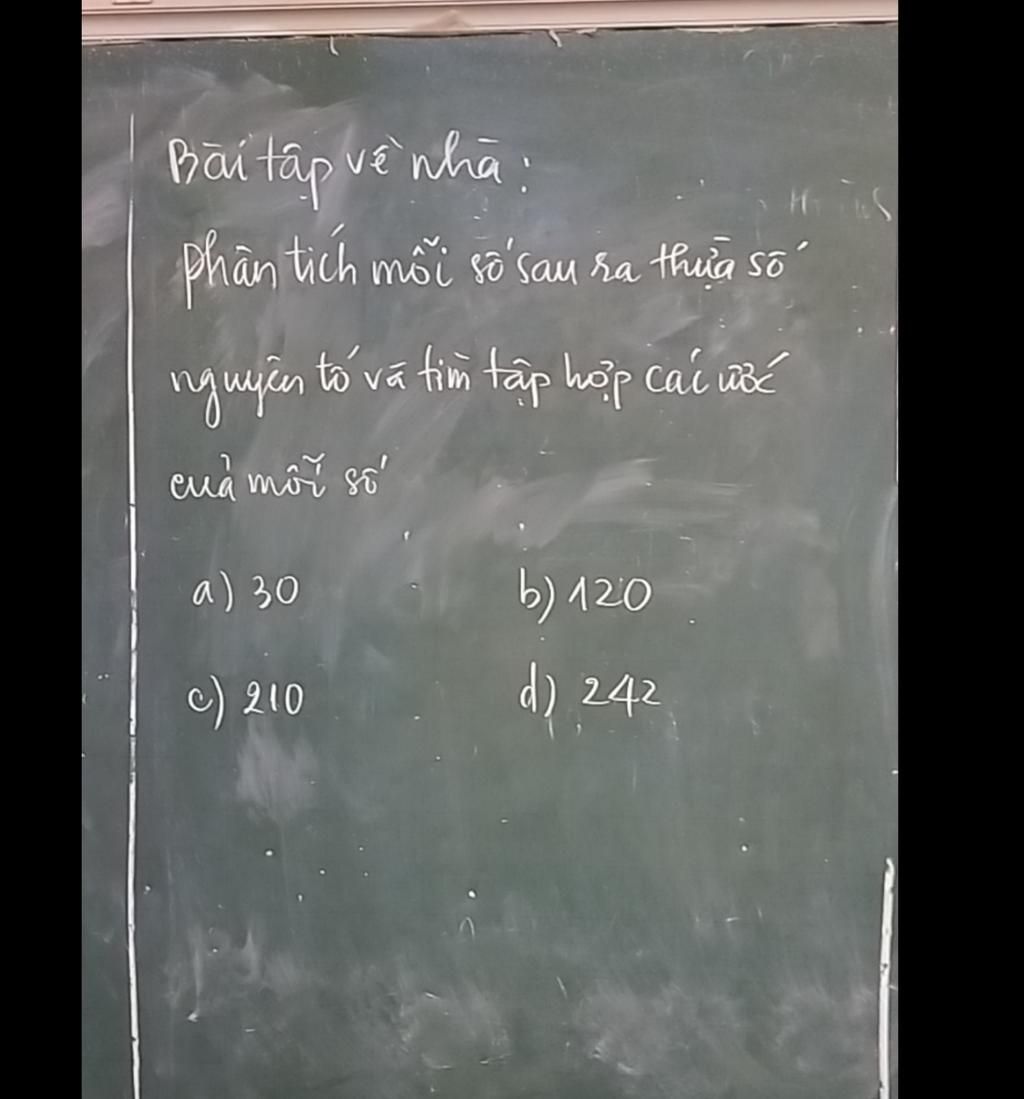 Bài tập về nhà:
phân tích mỗi số sau ra thừa số
nguyên tố và tìm tập hợp các ước
của mỗi số
a) 30 b) 120
c) 210 d) 242